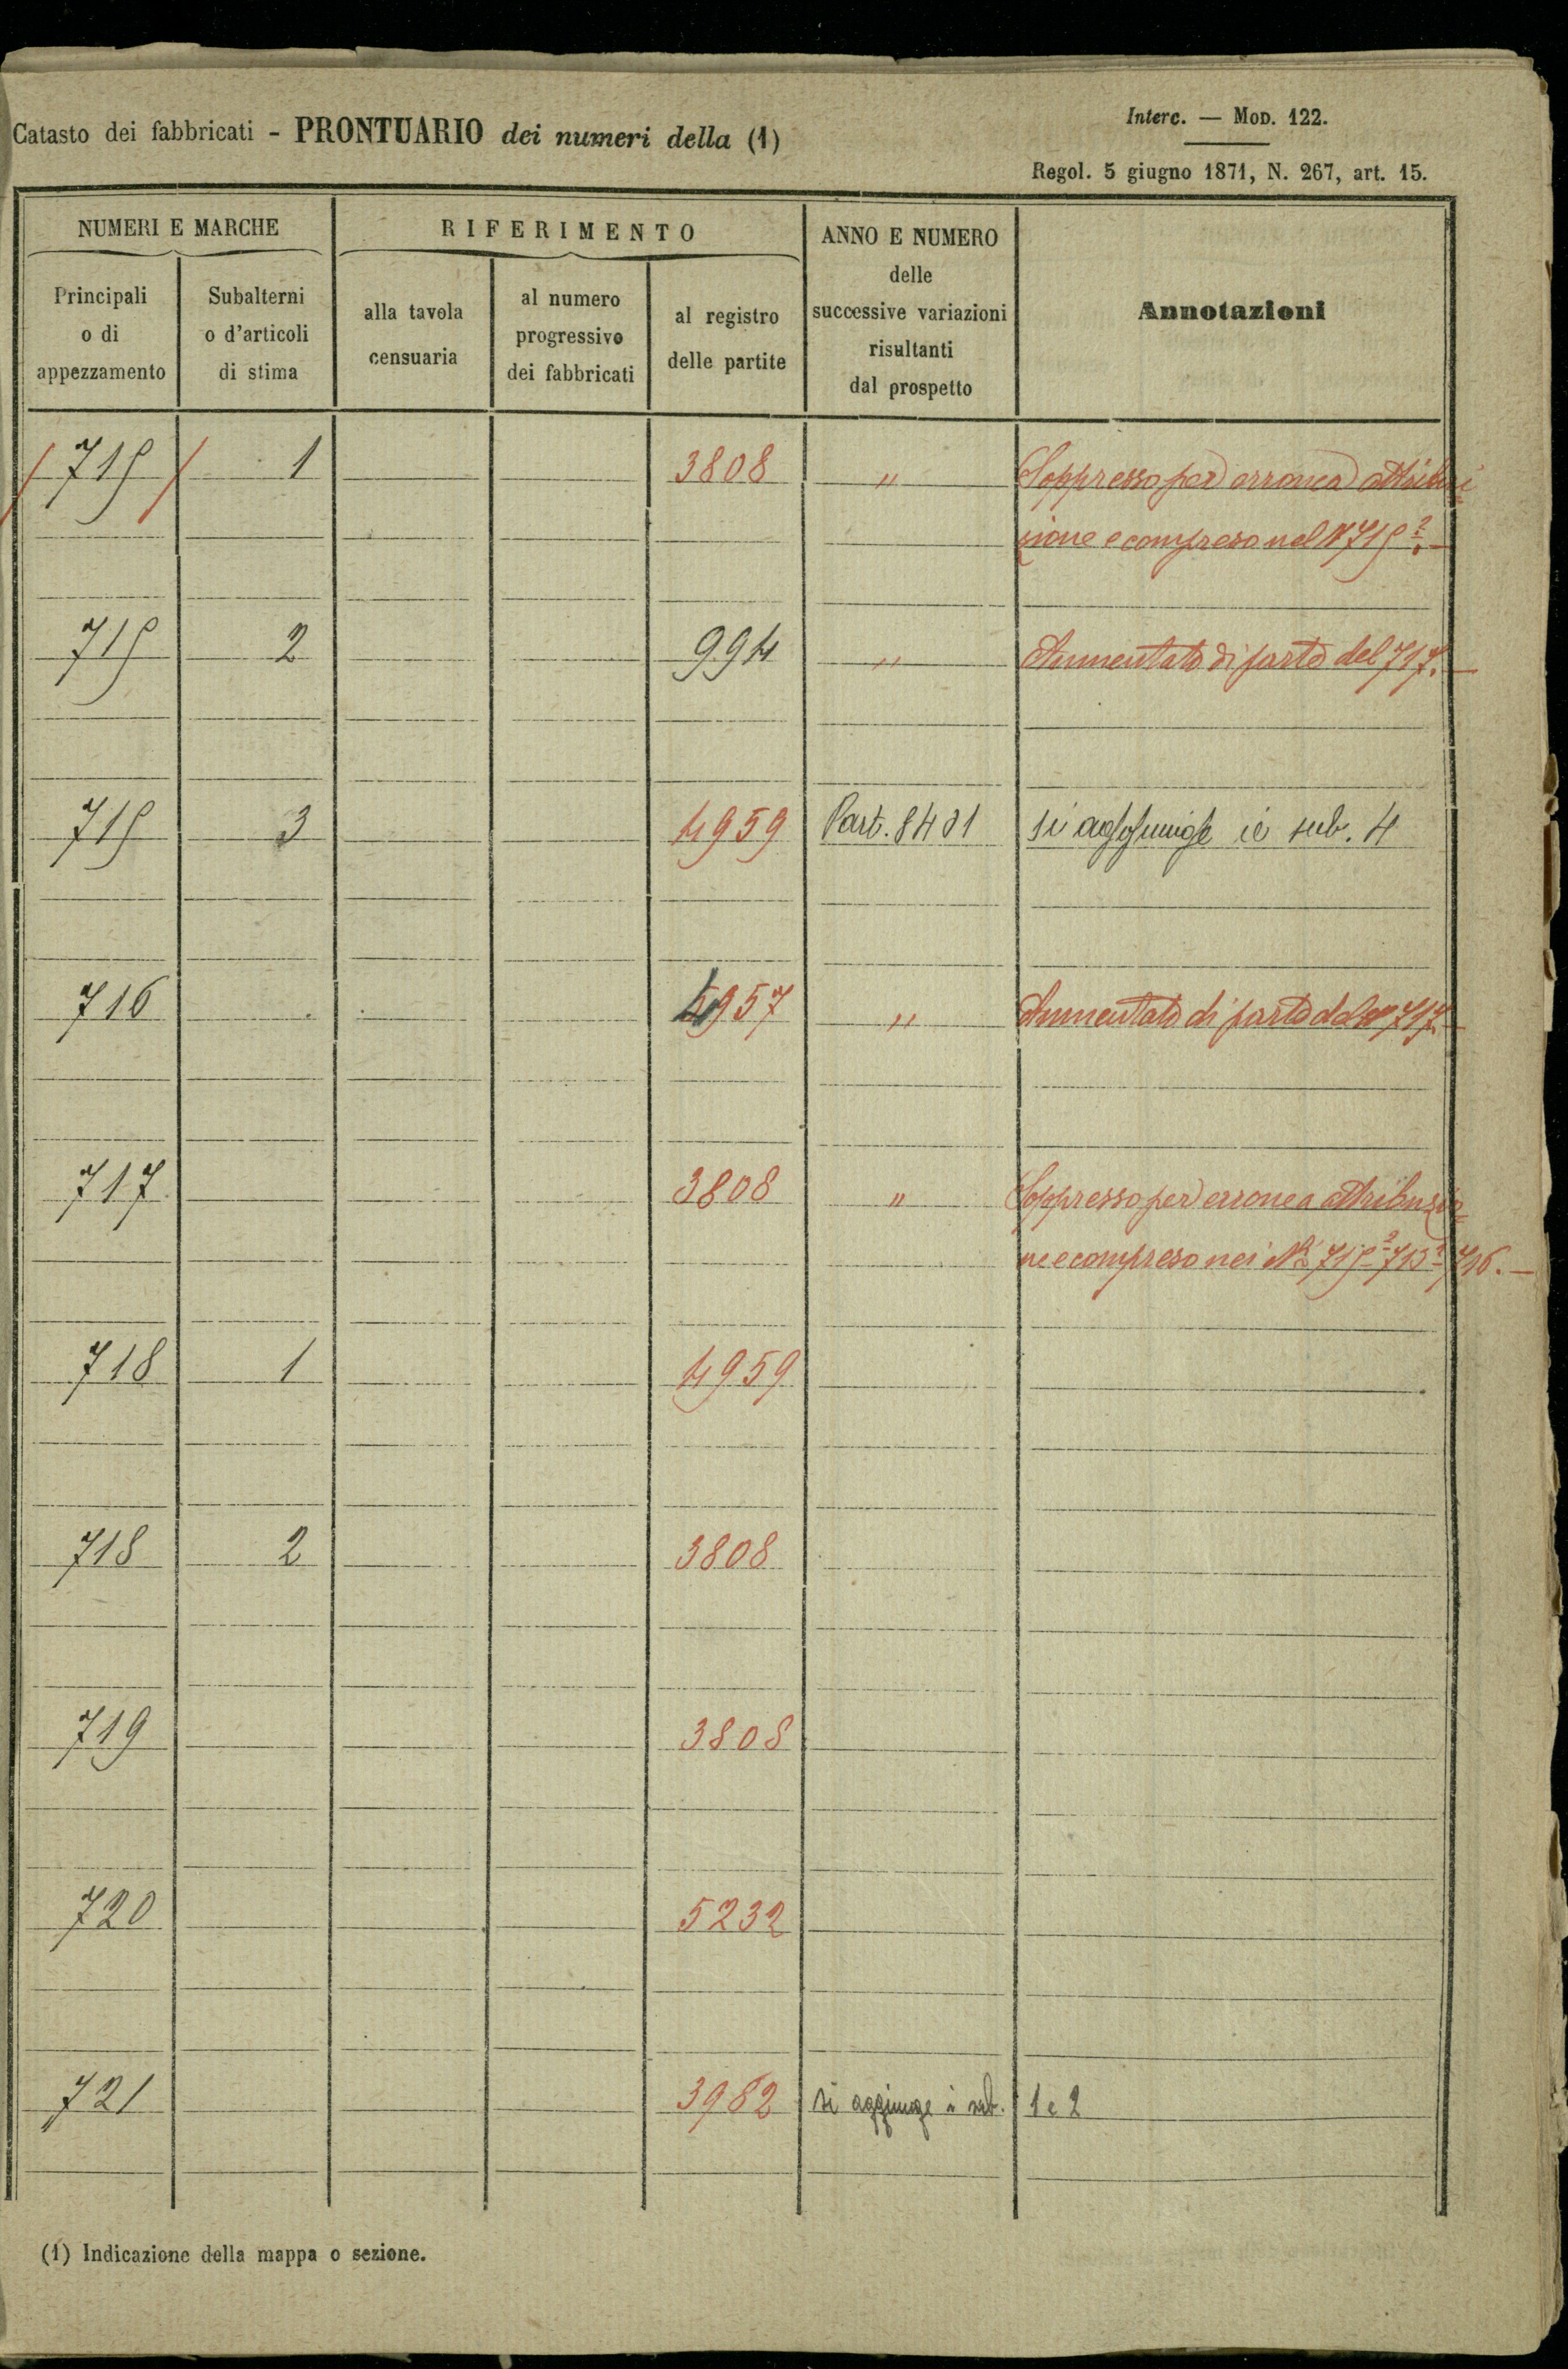 Catasto dei fabbricati - PRONTUARIO dei numeri della (1)
Interc. — Mod. 122.
Regol. 5 giugno 1871, N. 267, art. 15.
NUMERI E MARCHE
RIFERIMENTO
ANNO E NUMERO
delle
successive variazioni
risultanti
dal prospetto
Annotazioni
Principali
o di
appezzamento
Subalterni
o d'articoli
di stima
alla tavola
censuaria
al numero
progressivo
dei fabbricati
al registro
delle partite
715 1 3808 " Soppresso per erronea attribu
zione e compreso nel N 715 2.—
715 2 994 " Aumentato di parte del 717.—
715 3 4959 Part. 8401 si aggiunge il sub. 4
716 4957 " Aumentato di parte del N 717.—
717 3808 " Soppresso per erronea attribuzio
ne e compreso nei Ni 715 2 715 716.—
718 1 4959
718 2 3808
719 3808
720 5232
721 3982 si aggiunge i sub. 1 e 2
(1) Indicazione della mappa o sezione.